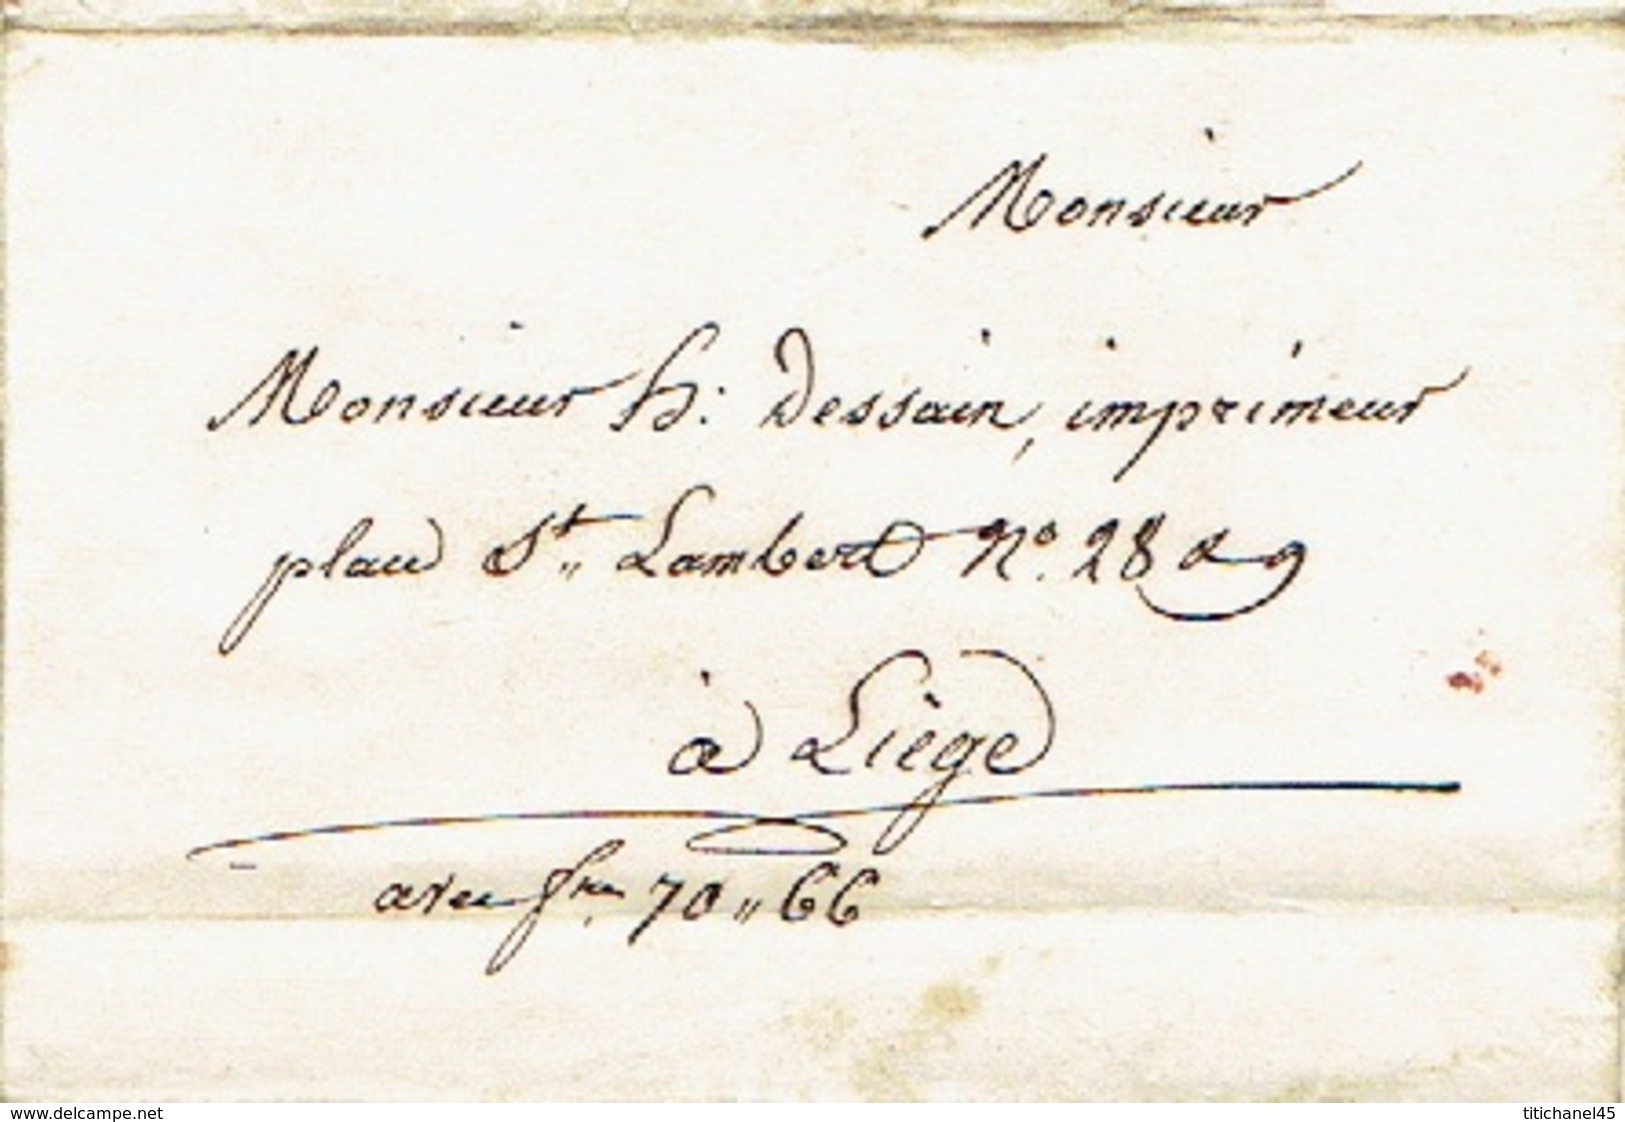 Monsieur
Monsieur H: Dessain, imprimeur
place St„ Lambert No. 28 & 9
à Liège
avec frcs. 70„66
www.delcampe.net
titichanel45